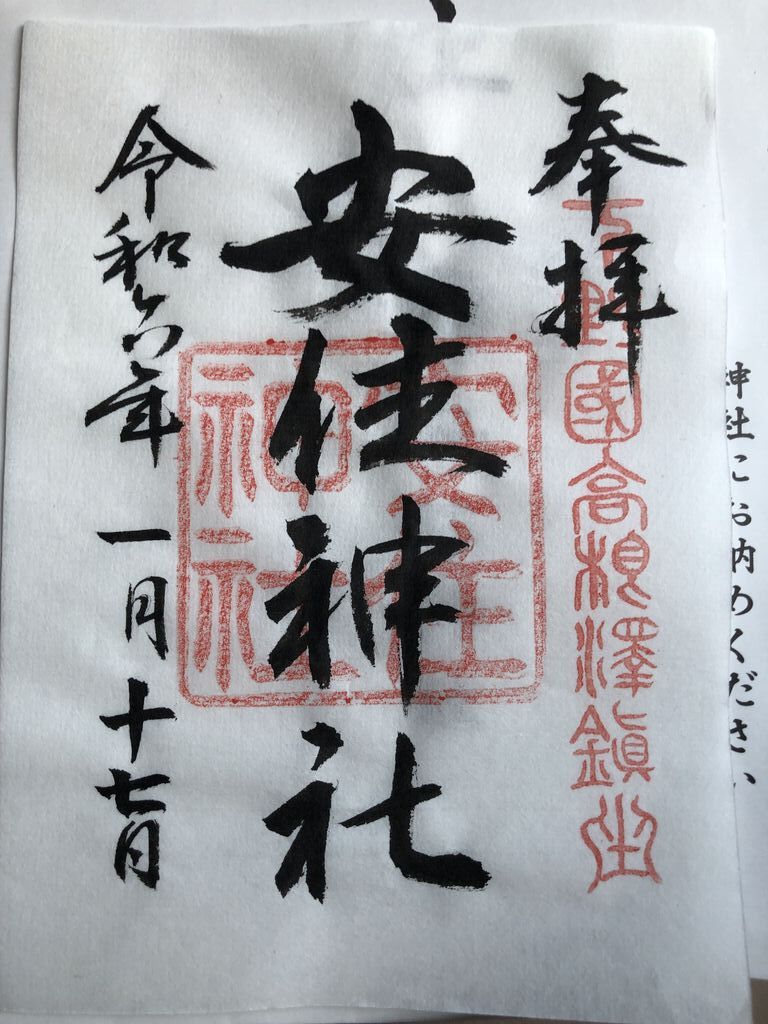 神社にお納めください
奉拝
下野國高根澤鎮坐
安住神社
安住神社
令和六年一月十七日